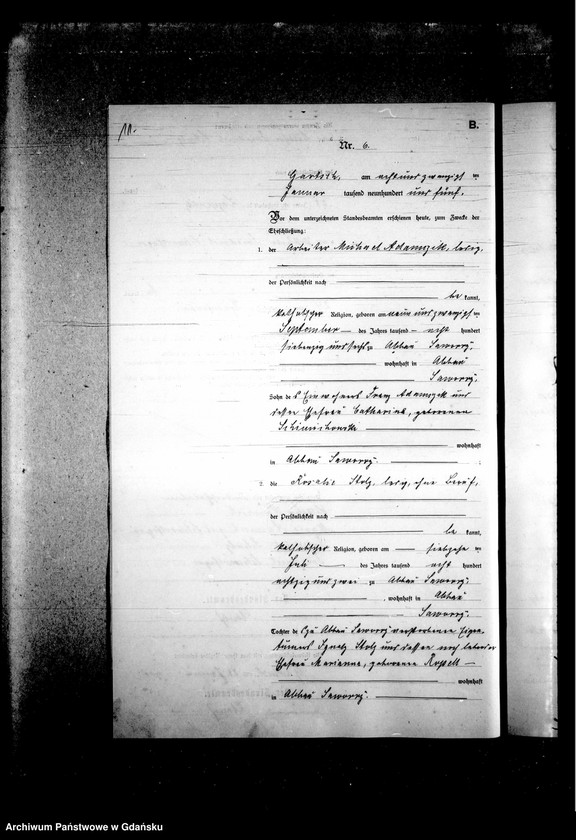 11.
B.
Nr. 6.
am achtundzwanzigsten
Januar tausend neunhundert und fünf.
Vor dem unterzeichneten Standesbeamten erschienen heute, zum Zwecke der
Eheschließung:
1. der Arbeiter Michael Adamczik, ledig,
der Persönlichkeit nach
be kannt,
katholischer Religion, geboren am neunundzwanzigsten
September des Jahres tausend acht hundert
siebenzig und sechs zu Abbau Saworry,
wohnhaft in Abbau
Saworry,
Sohn des Einwohners Franz Adamczik und
dessen Ehefrau Catharina, geborenen
wohnhaft
in Abbau Saworry.
2. die Rosalie Stolz, ledig, ohne Beruf,
der Persönlichkeit nach
be kannt,
katholischer Religion, geboren am siebzehnten
Juli des Jahres tausend acht hundert
achtzig und zwei zu Abbau Saworry,
wohnhaft in Abbau
Saworry.
Tochter des zu Abbau Saworry verstorbenen Eigen-
tümers Ignatz Stolz und dessen noch lebenden
Ehefrau Marianna, geborenen
wohnhaft
in Abbau Saworry.
Archiwum Państwowe w Gdańsku